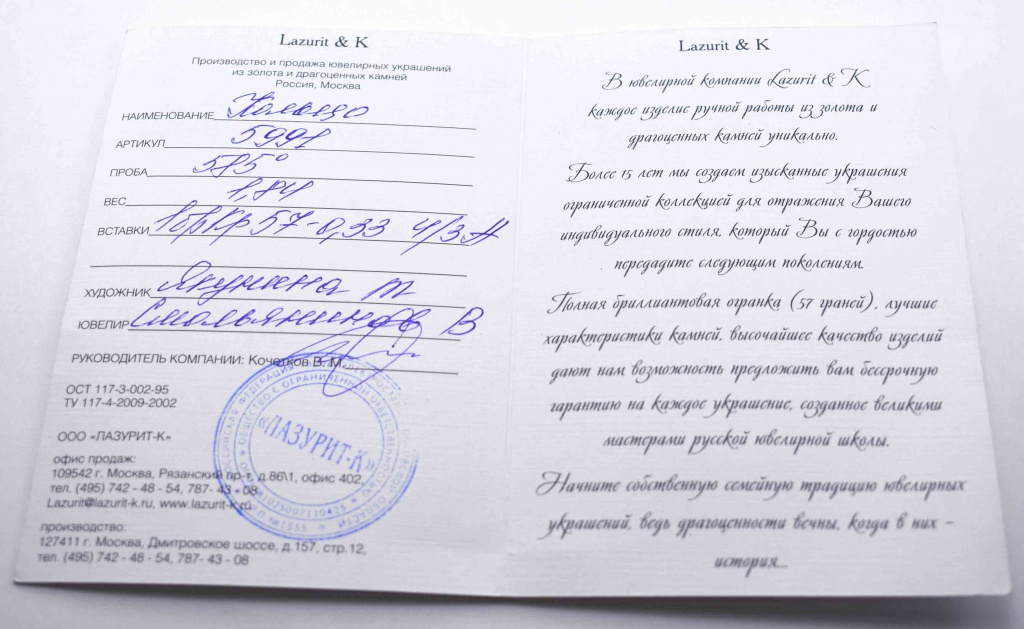 Lazurit & K
Производство и продажа ювелирных украшений
из золота и драгоценных камней
Россия, Москва
НАИМЕНОВАНИЕ Кольцо
АРТИКУЛ 5991
ПРОБА 585°
ВЕС 1,84
ВСТАВКИ 1брКр57-0,33 4/3А
ХУДОЖНИК Якунина Т
ЮВЕЛИР Смольянинов В
РУКОВОДИТЕЛЬ КОМПАНИИ: Кочетков В. М.
ОСТ 117-3-002-95
ТУ 117-4-2009-2002
ООО «ЛАЗУРИТ-К»
офис продаж:
109542 г. Москва, Рязанский пр-т, д.86\1, офис 402,
тел. (495) 742 - 48 - 54, 787- 43 - 08
Lazurit@lazurit-k.ru, www.lazurit-k.ru
производство:
127411 г. Москва, Дмитровское шоссе, д.157, стр.12,
тел. (495) 742 - 48 - 54, 787- 43 - 08
РОССИЙСКАЯ ФЕДЕРАЦИЯ
ОБЩЕСТВО С ОГРАНИЧЕННОЙ ОТВЕТСТВЕННОСТЬЮ
«ЛАЗУРИТ-К»
Lazurit & K
В ювелирной компании Lazurit & K
каждое изделие ручной работы из золота и
драгоценных камней уникально.
Более 15 лет мы создаем изысканные украшения
ограниченной коллекцией для отражения Вашего
индивидуального стиля, который Вы с гордостью
передадите следующим поколениям.
Полная бриллиантовая огранка (57 граней), лучшие
характеристики камней, высочайшее качество изделий
дают нам возможность предложить вам бессрочную
гарантию на каждое украшение, созданное великими
мастерами русской ювелирной школы.
Начните собственную семейную традицию ювелирных
украшений, ведь драгоценности вечны, когда в них –
история...